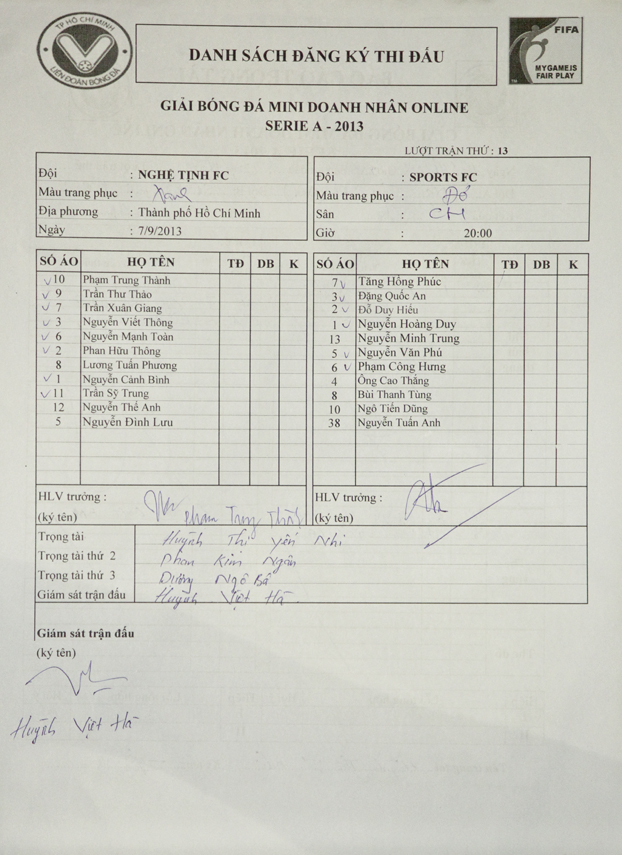 TP HỒ CHÍ MINH
LIÊN ĐOÀN BÓNG ĐÁ
DANH SÁCH ĐĂNG KÝ THI ĐẤU
FIFA
MY GAME IS
FAIR PLAY
GIẢI BÓNG ĐÁ MINI DOANH NHÂN ONLINE
SERIE A - 2013
LƯỢT TRẬN THỨ : 13
Đội : NGHỆ TỊNH FC
Màu trang phục : Xanh
Địa phương : Thành phố Hồ Chí Minh
Ngày : 7/9/2013
Đội : SPORTS FC
Màu trang phục : Đỏ
Sân : CH
Giờ : 20:00
SỐ ÁO HỌ TÊN TĐ DB K
10 Phạm Trung Thành
9 Trần Thư Thảo
7 Trần Xuân Giang
3 Nguyễn Viết Thông
6 Nguyễn Mạnh Toàn
2 Phan Hữu Thông
8 Lương Tuấn Phương
1 Nguyễn Cảnh Bình
11 Trần Sỹ Trung
12 Nguyễn Thế Anh
5 Nguyễn Đình Lưu
SỐ ÁO HỌ TÊN TĐ DB K
7 Tăng Hồng Phúc
3 Đặng Quốc An
2 Đỗ Duy Hiếu
1 Nguyễn Hoàng Duy
13 Nguyễn Minh Trung
5 Nguyễn Văn Phú
6 Phạm Công Hưng
4 Ông Cao Thắng
8 Bùi Thanh Tùng
10 Ngô Tiến Dũng
38 Nguyễn Tuấn Anh
HLV trưởng :
(ký tên) Phạm Trung Thành
HLV trưởng :
(ký tên)
Trọng tài Huỳnh Thị Yến Nhi
Trọng tài thứ 2 Phan Kim Ngân
Trọng tài thứ 3 Dương Ngô Bá
Giám sát trận đấu Huỳnh Việt Hà
Giám sát trận đấu
(ký tên)
Huỳnh Việt Hà